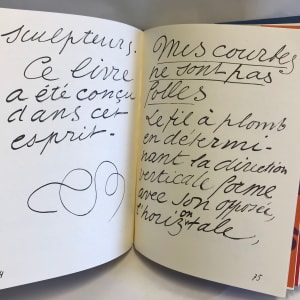 sculpteurs.
Ce livre
a été conçu
dans cet
esprit.
Mes courbes
ne sont pas
folles
Le fil à plomb
en détermi-
nant la direction
verticale forme
avec son opposée,
l'horizontale,
75